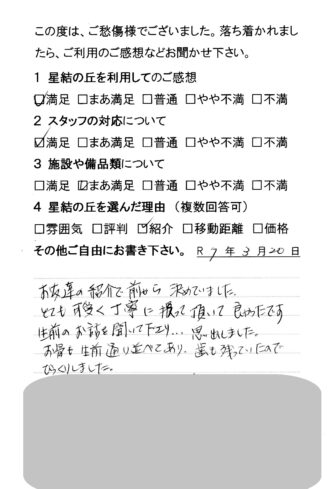 この度は、ご愁傷様でございました。落ち着かれまし
たら、ご利用のご感想などお聞かせ下さい。
1 星結の丘を利用してのご感想
☑満足 □まあ満足 □普通 □やや不満 □不満
2 スタッフの対応について
☑満足 □まあ満足 □普通 □やや不満 □不満
3 施設や備品類について
□満足 ☑まあ満足 □普通 □やや不満 □不満
4 星結の丘を選んだ理由（複数回答可）
□雰囲気 □評判 ☑紹介 □移動距離 □価格
その他ご自由にお書き下さい。 R7年3月20日
お友達の紹介で前から決めていました。
とても 丁寧に扱って頂いて良かったです
生前のお話を聞いて下さり… 思い出しました。
お骨も生前通り並べてあり、歯も残っていたので
びっくりしました。